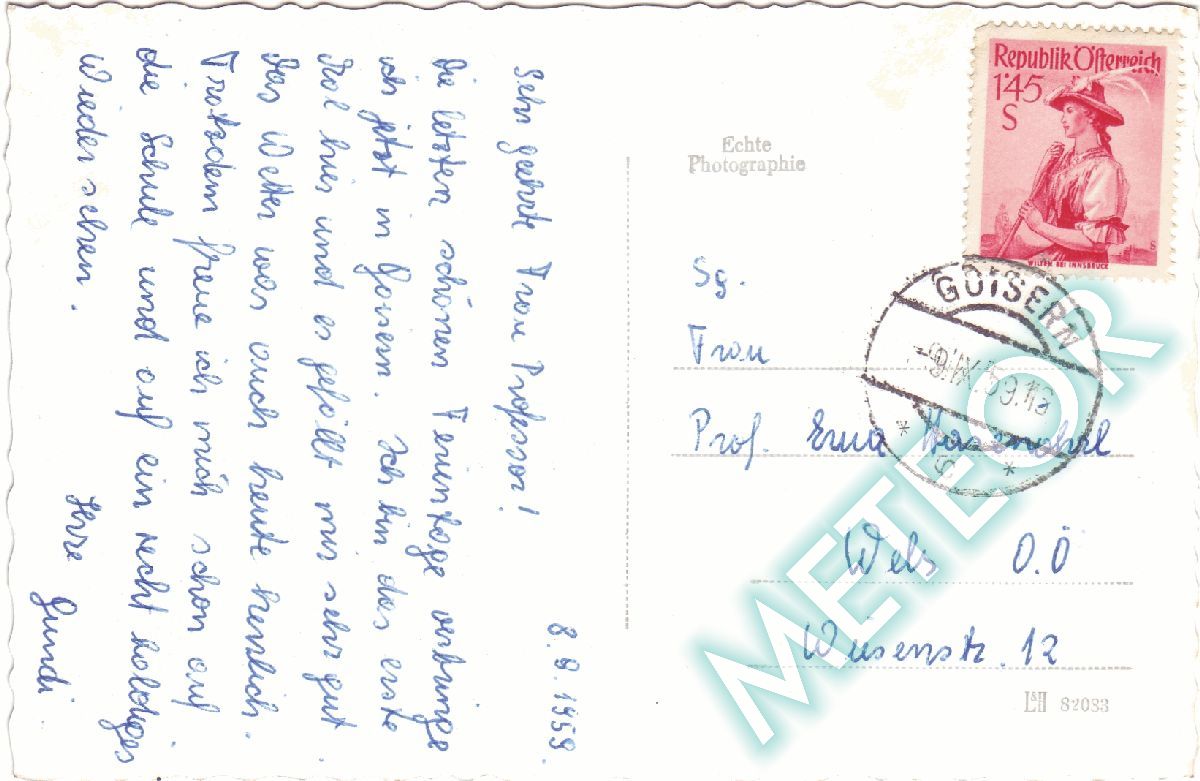 8.9.1959.
Sehr geehrte Frau Professor!
Die letzten schönen Ferientage verbringe
ich jetzt in Goisern. Ich bin das erste
Mal hier und es gefällt mir sehr gut
Das Wetter war auch heute herrlich.
Trotzdem freue ich mich schon auf
die Schule und auf ein recht baldiges
Wiedersehen.
Ihre
Gundi.
Republik Österreich
1·45
S
WILTEN BEI INNSBRUCK
Echte
Photographie
GOISERN
Sg.
Frau
Prof. Erna
Wels O.Ö
Wiesenstr. 12
L&H 82033
METEOR